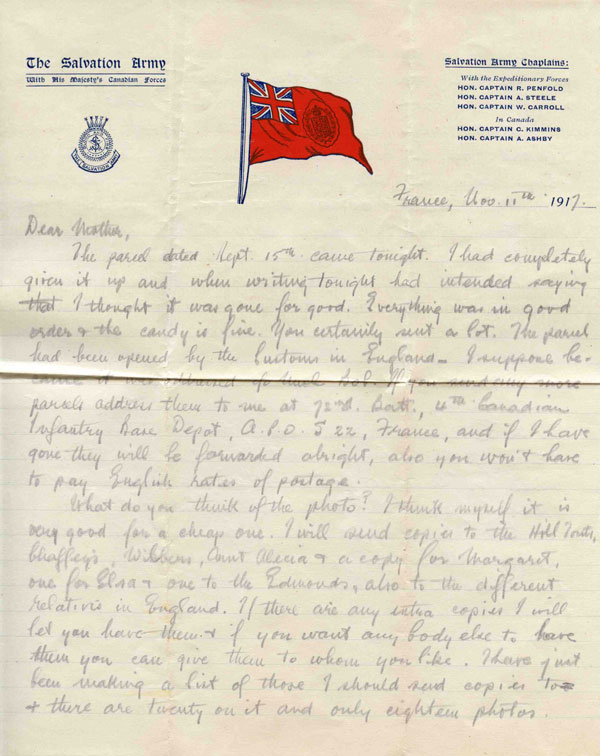 The Salvation Army
With His Majesty's Canadian Forces
Salvation Army Chaplains:
With the Expeditionary Forces
HON. CAPTAIN R. PENFOLD
HON. CAPTAIN A. STEELE
HON. CAPTAIN W. CARROLL
In Canada
HON. CAPTAIN C. KIMMINS
HON. CAPTAIN A. ASHBY
France, Nov. 11th 1917.
Dear Mother,
The parcel dated Sept. 15th came tonight. I had completely
given it up and when writing tonight had intended saying
that I thought it was gone for good. Everything was in good
order & the candy is fine. You certainly sent a lot. The parcel
had been opened by the Customs in England - I suppose be-
cause it was addressed to 
If you send any more
parcels address them to me at 72nd. Batt., 4th Canadian
Infantry Base Depot, A.P.O. S 22, France, and if I have
gone they will be forwarded alright, also you won't have
to pay English rates of postage.
What do you think of the photo? I think myself it is
very good for a cheap one. I will send copies to the
Chaffeys, Wilbers, Aunt Alecia & a copy for Margaret,
one for Elsa & one to the Edmonds, also to the different
relativis in England. If there are any extra copies I will
let you have them & if you want any body else to have
them you can give them to whom you like. I have just
been making a list of those I should send copies to
& there are twenty on it and only eighteen photos.